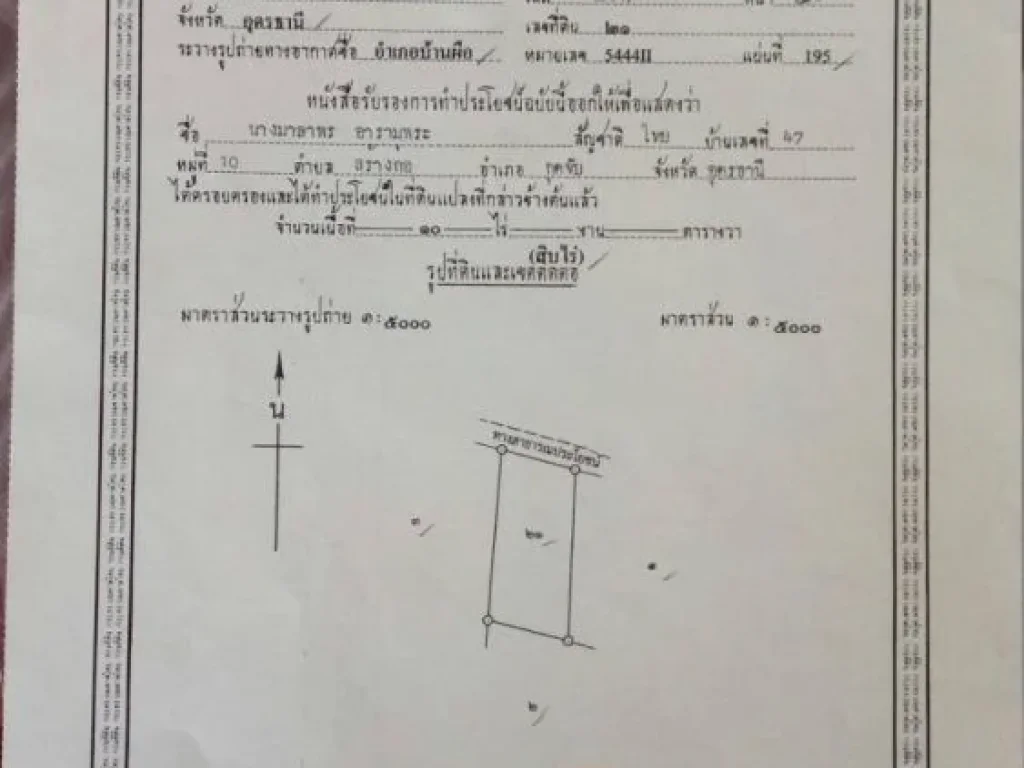 จังหวัด อุดรธานี
เลขที่ดิน ๒๑
ระวางรูปถ่ายทางอากาศชื่อ อำเภอบ้านผือ หมายเลข 5444II แผ่นที่ 195
หนังสือรับรองการทำประโยชน์ฉบับนี้ออกให้เพื่อแสดงว่า
ชื่อ นางมาลาพร สัญชาติ ไทย บ้านเลขที่ 47
หมู่ที่ 10 ตำบล สร้างก่อ อำเภอ กุดจับ จังหวัด อุดรธานี
ได้ครอบครองและได้ทำประโยชน์ในที่ดินแปลงที่กล่าวข้างต้นแล้ว
จำนวนเนื้อที่ ๑๐ ไร่ งาน ตารางวา
(สิบไร่)
รูปที่ดินและเขตติดต่อ
มาตราส่วนระวางรูปถ่าย ๑ : ๕๐๐๐ มาตราส่วน ๑ : ๕๐๐๐
น
ทางสาธารณประโยชน์
๓
๒๑
๑
๒